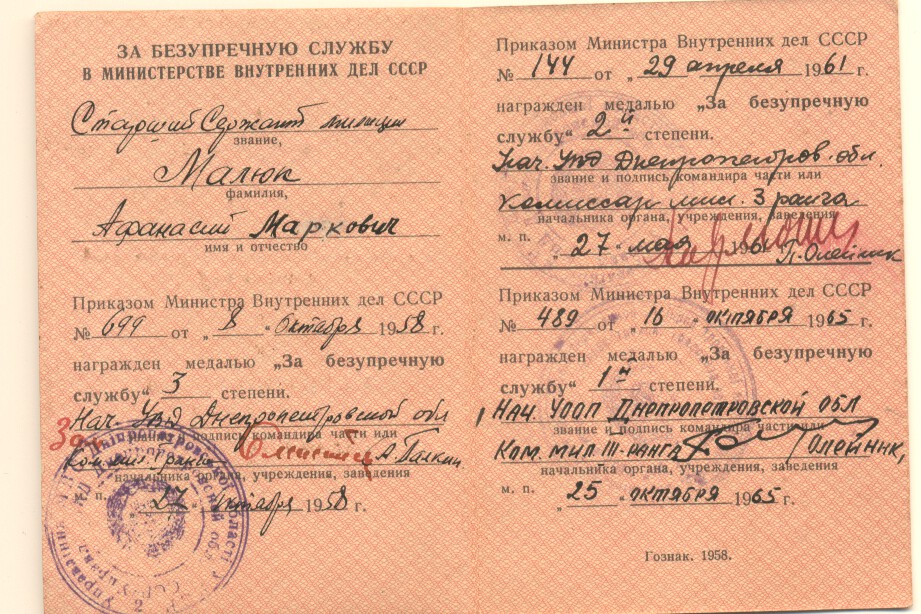 ЗА БЕЗУПРЕЧНУЮ СЛУЖБУ
В МИНИСТЕРСТВЕ ВНУТРЕННИХ ДЕЛ СССР
Старший Сержант милиции
звание,
Малюк
фамилия,
Афанасий Маркович
имя и отчество
Приказом Министра Внутренних дел СССР
№ 699 от „ 8 " Октября 1958 г.
награжден медалью „За безупречную
службу" 3 степени.
Нач. Увд Днепропетровской обл
звание и подпись командира части или
А. Галкин
начальника органа, учреждения, заведения
м. п. „ 27 " октября 1958 г.
Приказом Министра Внутренних дел СССР
№ 144 от „ 29 апреля 1961 г.
награжден медалью „За безупречную
службу" 2й степени.
Нач. Увд Днепропетров. обл.
звание и подпись командира части или
Комиссар мил. 3 ранга
начальника органа, учреждения, заведения
м. п. „ 27 " мая 1961 П. Олейник
Приказом Министра Внутренних дел СССР
№ 489 от „ 16 " октября 1965 г.
награжден медалью „За безупречную
службу" 1й степени.
Нач. УООП Днепропетровской обл
звание и подпись командира части или
Ком. мил III-ранга Олейник,
начальника органа, учреждения, заведения
м. п. „ 25 " октября 1965 г.
Гознак. 1958.